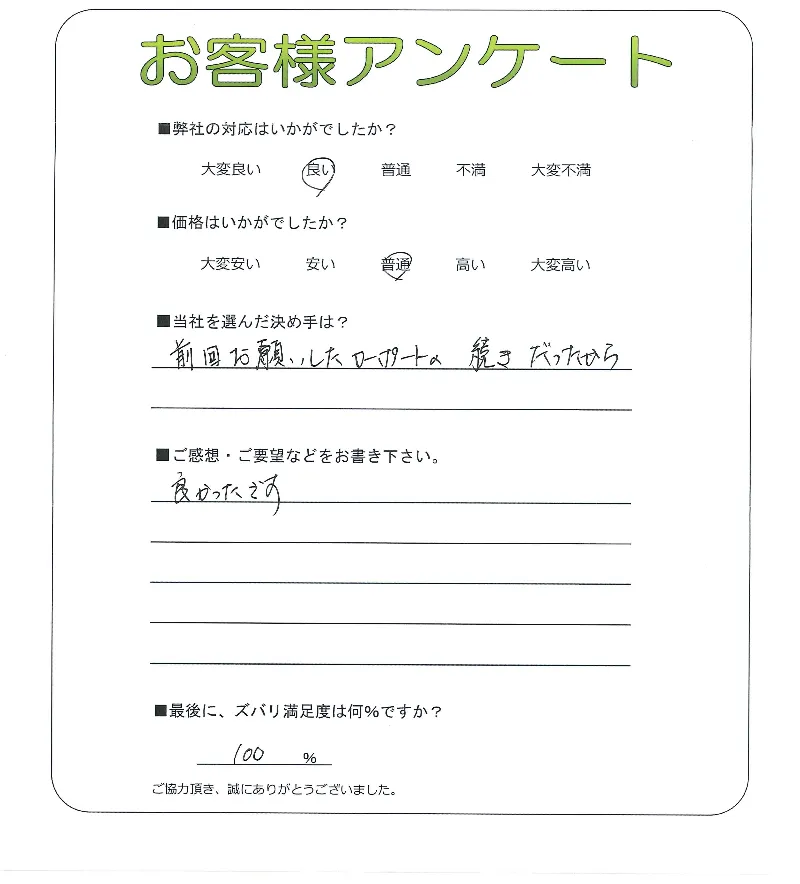 お客様アンケート
■弊社の対応はいかがでしたか？
大変良い 良い 普通 不満 大変不満
■価格はいかがでしたか？
大変安い 安い 普通 高い 大変高い
■当社を選んだ決め手は？
前回お願いしたカーポートの 続きだったから
■ご感想・ご要望などをお書き下さい。
良かったです
■最後に、ズバリ満足度は何％ですか？
100 ％
ご協力頂き、誠にありがとうございました。